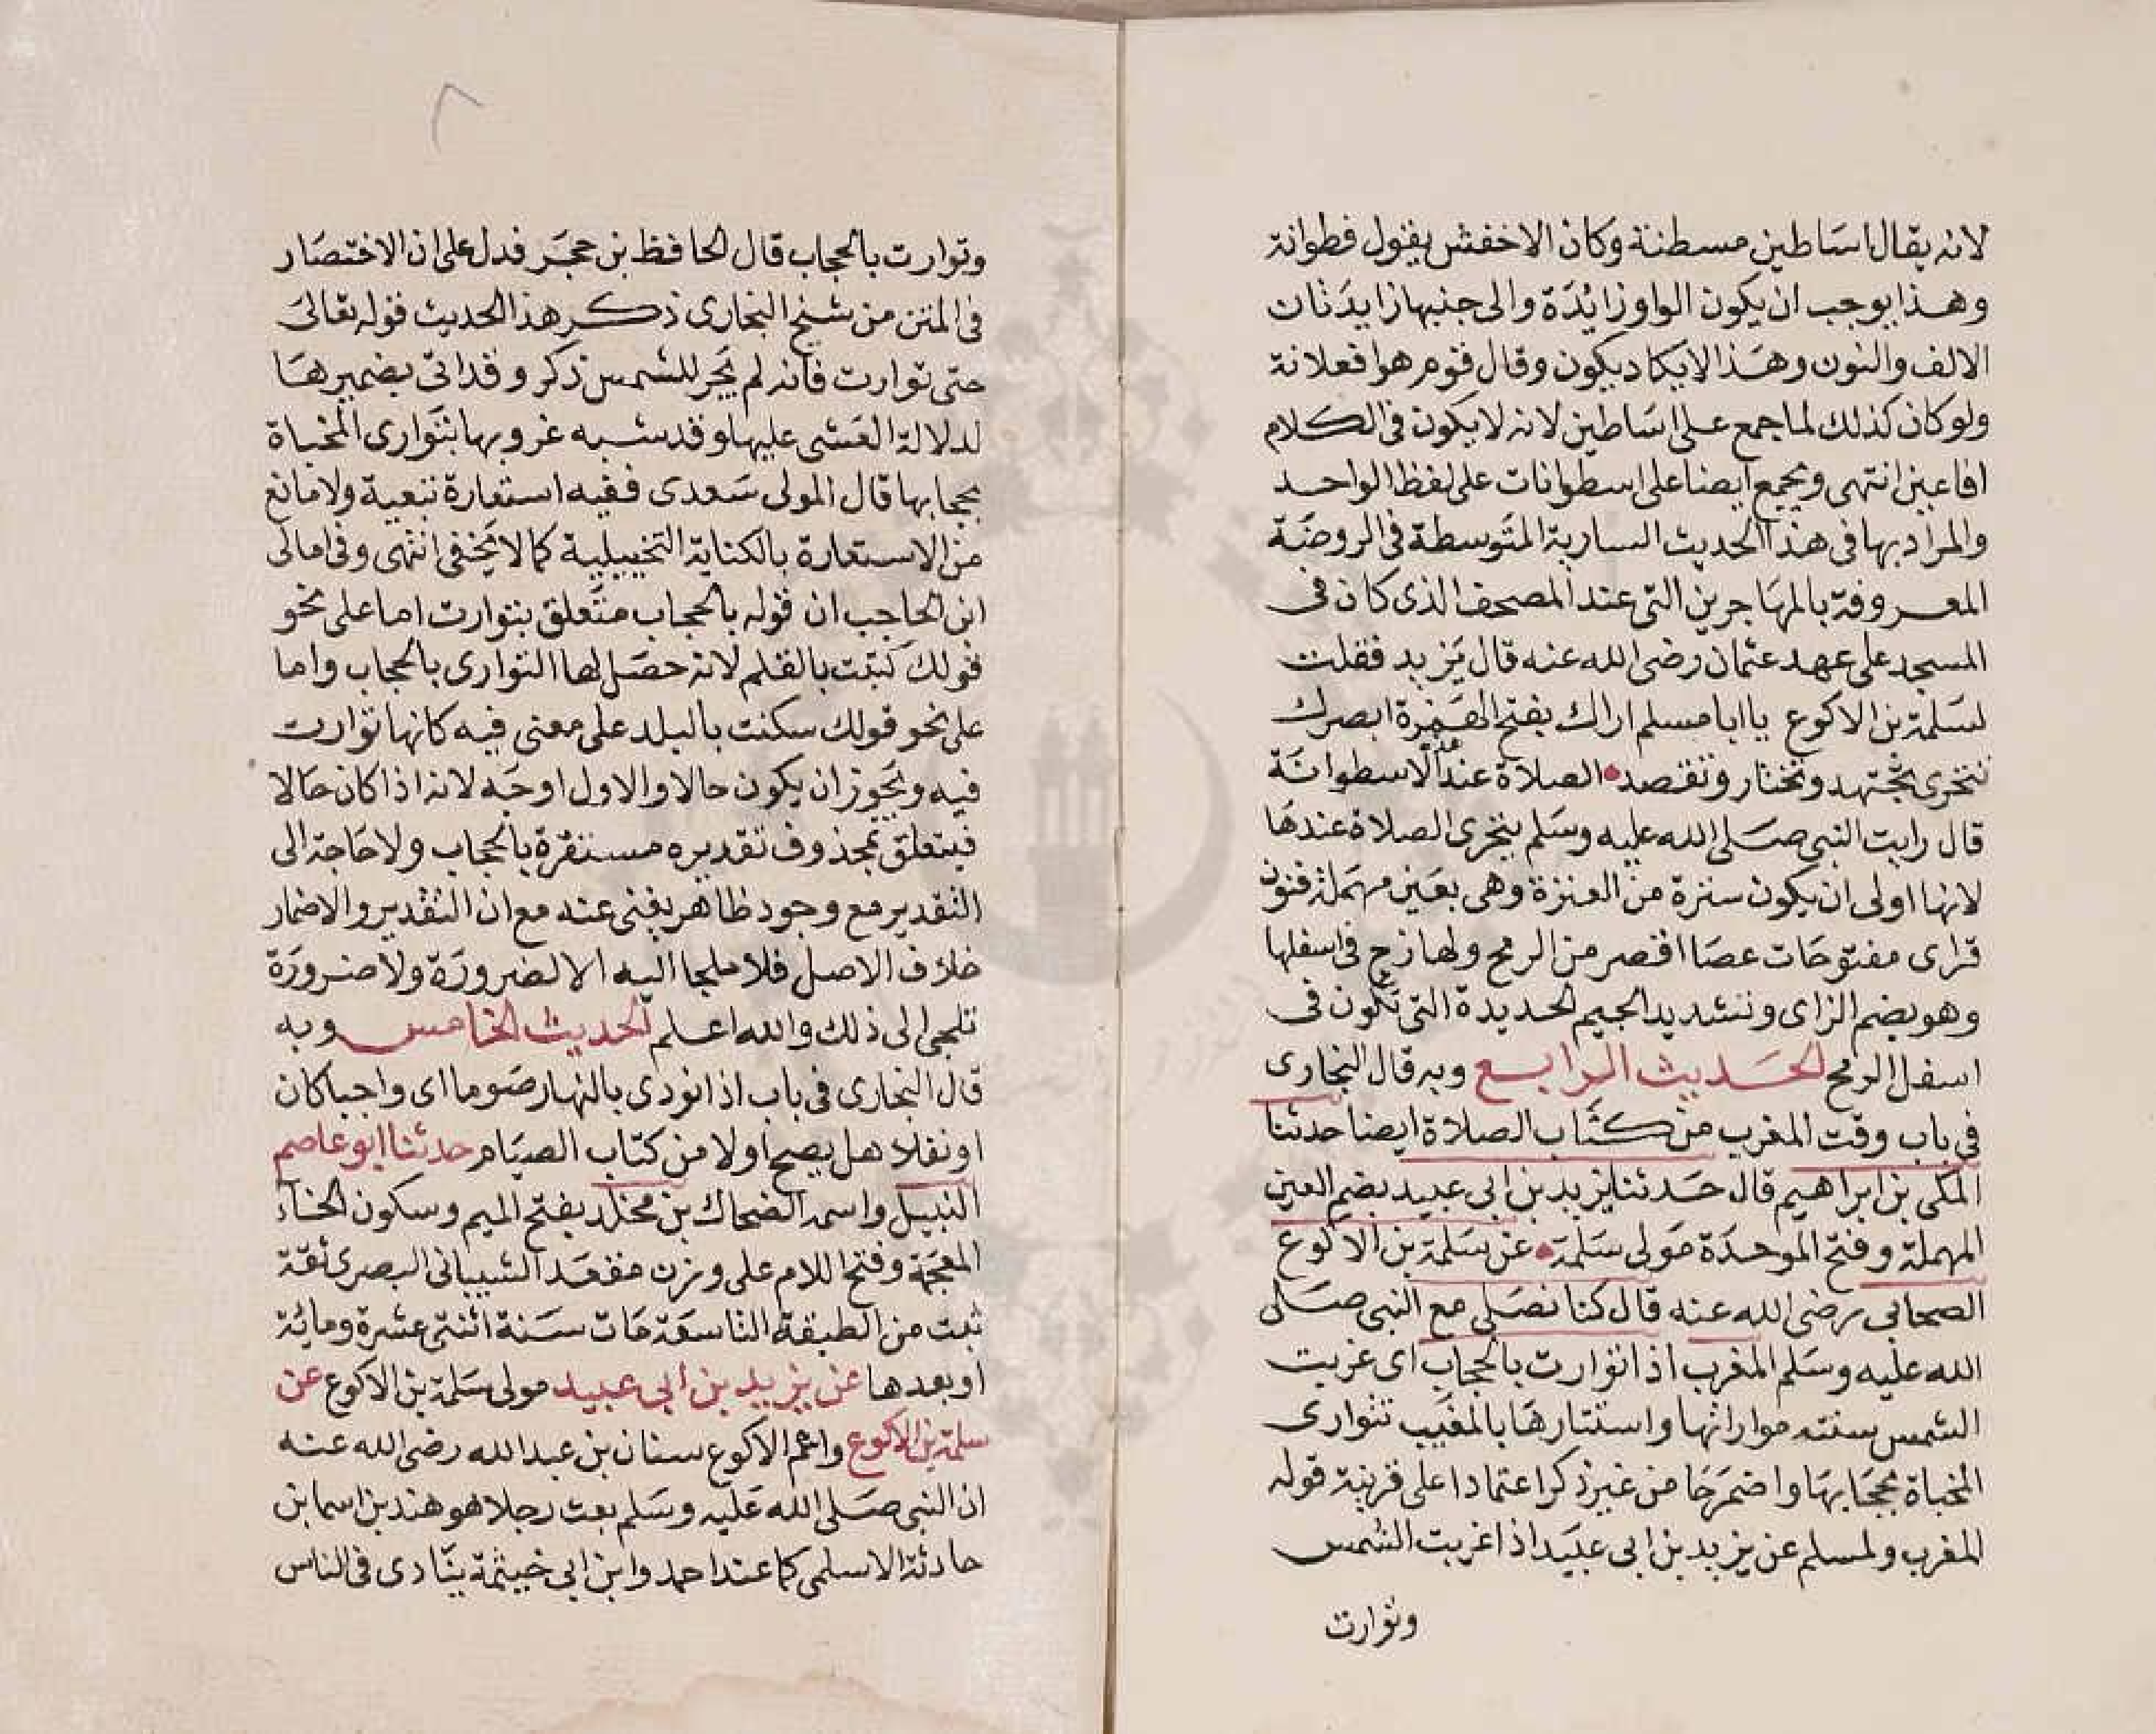 لانه يقال اساطين مسطنة وكان الاخفش يقول فطوانة
وهذا يوجب ان يكون الواو زائدة والى جنبها زايدتان
الالف والنون وهذا لا يكاد يكون وقال قوم هو افعلانة
ولو كان كذلك لما جمع على اساطين لانه لا يكون فى الكلام
افاعين انتهى ويجمع ايضا على اسطوانات على لفظ الواحد
والمراد بها فى هذا الحديث السارية المتوسطة فى الروضة
المعروفة بالمهاجرين التى عند المصحف الذى كان فى
المسجد على عهد عثمان رضى الله عنه قال يزيد فقلت
لسلمة بن الاكوع يا ابا مسلم اراك بفتح الهمزة ابصرك
تتحرى تجتهد وتختار وتقصد الصلاة عند الاسطوانة
قال رايت النبى صلى الله عليه وسلم يتحرى الصلاة عندها
لانها اولى ان يكون سترة من العنزة وهى بعين مهملة فنون
فزاى مفتوحات عصا اقصر من الرمح ولها زج فى اسفلها
وهو بضم الزاى وتشديد الجيم الحديدة التى تكون فى
اسفل الرمح الحديث الرابع وبه قال البخارى
فى باب وقت المغرب من كتاب الصلاة ايضا حدثنا
المكى بن ابراهيم قال حدثنا يزيد بن ابى عبيد بضم العين
المهملة وفتح الموحدة مولى سلمة عن سلمة بن الاكوع
الصحابى رضى الله عنه قال كنا نصلى مع النبى صلى
الله عليه وسلم المغرب اذا توارت بالحجاب اى غربت
الشمس سنته مواراتها واستتارها بالمغيب تتوارى
المخباة بحجابها واضمرها من غير ذكر اعتمادا على قرينة قوله
المغرب ولمسلم عن يزيد بن ابى عبيد اذا غربت الشمس
وتوارت
وتوارت بالحجاب قال الحافظ بن حجر فدل على ان الاختصار
فى المتن من شيخ البخارى ذكر هذا الحديث قوله تعالى
حتى توارت فانه لم يجر للشمس ذكر وقد اتى بضميرها
لدلالة العشى عليها وقد شبه غروبها بتوارى المخباة
بحجابها قال المولى سعدى ففيه استعارة تبعية ولا مانع
من الاستعارة بالكناية التخييلية كما لا يخفى انتهى وفى امالى
ابن الحاجب ان قوله بالحجاب متعلق بتوارت اما على نحو
قولك كتبت بالقلم لانه حصل لها التوارى بالحجاب واما
على نحو قولك سكنت بالبلد على معنى فيه كانها توارت
فيه ويجوز ان يكون حالا والاول اوجه لانه اذا كان حالا
فيتعلق بمحذوف تقديره مستقرة بالحجاب ولا حاجة الى
التقدير مع وجود ظاهر يغنى عنه مع ان التقدير والاضمار
خلاف الاصل فلا ملجا اليه الا لضرورة ولا ضرورة
تلجى الى ذلك والله اعلم الحديث الخامس وبه
قال البخارى فى باب اذا نودى بالنهار صوما اى واجبا كان
او نفلا هل يصح او لا من كتاب الصيام حدثنا ابو عاصم
النبيل واسمه الضحاك بن مخلد بفتح الميم وسكون الخاء
المعجمة وفتح اللام على وزن مقعد الشيبانى البصرى ثقة
ثبت من الطبقة التاسعة مات سنة اثنتى عشرة ومائة
او بعدها عن يزيد بن ابى عبيد مولى سلمة بن الاكوع عن
سلمة بن الاكوع واعم الاكوع سنان بن عبد الله رضى الله عنه
ان النبى صلى الله عليه وسلم بعث رجلا هو هند بن اسما بن
حادثة الاسلمى كما عند احمد وابن ابى خيثمة ينادى فى الناس